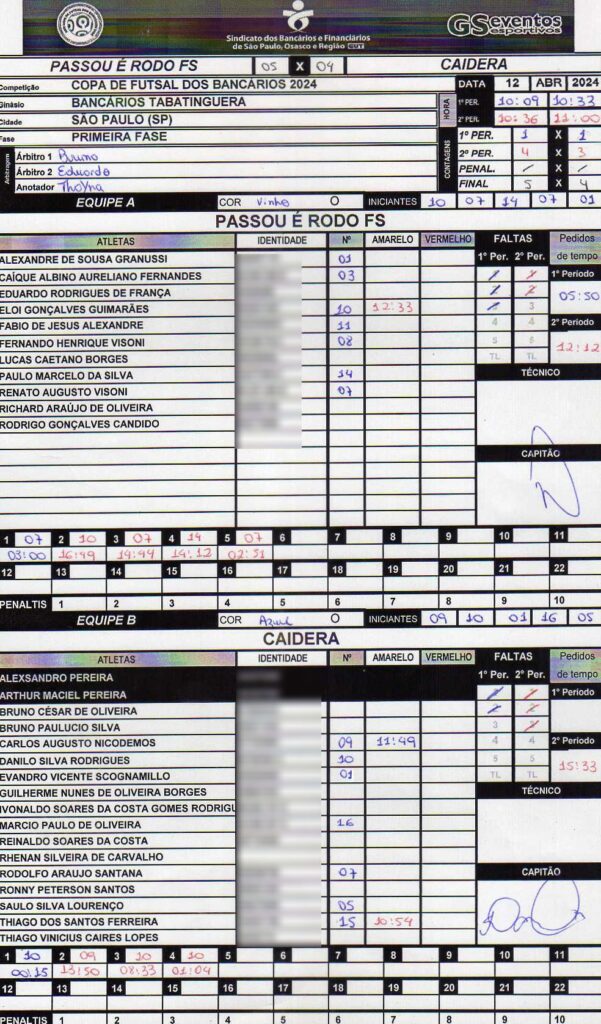 Sindicato dos Bancários e Financiários
de São Paulo, Osasco e Região CUT
GSeventos
esportivos
PASSOU É RODO FS 05 X 04 CAIDERA
Competição COPA DE FUTSAL DOS BANCÁRIOS 2024 DATA 12 ABR 2024
Ginásio BANCÁRIOS TABATINGUERA HORA 1º PER. 10:09 10:33
Cidade SÃO PAULO (SP) 2º PER. 10:36 11:00
Fase PRIMEIRA FASE CONTAGENS 1º PER. 1 X 1
Arbitragem Árbitro 1 Bruno 2º PER. 4 X 3
Árbitro 2 Eduardo PENAL. / X /
Anotador Thayna FINAL 5 X 4
EQUIPE A COR Vinho O INICIANTES 10 07 14 07 01
PASSOU É RODO FS
ATLETAS IDENTIDADE Nº AMARELO VERMELHO FALTAS Pedidos
1º Per. 2º Per. de tempo
ALEXANDRE DE SOUSA GRANUSSI 01
CAÍQUE ALBINO AURELIANO FERNANDES 03 1º Período
EDUARDO RODRIGUES DE FRANÇA 05:50
ELOI GONÇALVES GUIMARÃES 10 12:33 3
FABIO DE JESUS ALEXANDRE 11 4 4 2º Período
FERNANDO HENRIQUE VISONI 08 5 5 12:12
LUCAS CAETANO BORGES TL TL
PAULO MARCELO DA SILVA 14 TÉCNICO
RENATO AUGUSTO VISONI 07
RICHARD ARAÚJO DE OLIVEIRA
RODRIGO GONÇALVES CANDIDO
CAPITÃO
1 07 2 10 3 07 4 14 5 07 6 7 8 9 10 11
03:00 16:49 14:44 14:12 02:31
12 13 14 15 16 17 18 19 20 21 22
PENALTIS 1 2 3 4 5 6 7 8 9 10
EQUIPE B COR Azul O INICIANTES 09 10 01 16 05
CAIDERA
ATLETAS IDENTIDADE Nº AMARELO VERMELHO FALTAS Pedidos
1º Per. 2º Per. de tempo
ALEXSANDRO PEREIRA
ARTHUR MACIEL PEREIRA 1º Período
BRUNO CÉSAR DE OLIVEIRA
BRUNO PAULUCIO SILVA 3
CARLOS AUGUSTO NICODEMOS 09 11:49 4 4 2º Período
DANILO SILVA RODRIGUES 10 5 5 15:33
EVANDRO VICENTE SCOGNAMILLO 01 TL TL
GUILHERME NUNES DE OLIVEIRA BORGES TÉCNICO
IVONALDO SOARES DA COSTA GOMES RODRIGU
MARCIO PAULO DE OLIVEIRA 16
REINALDO SOARES DA COSTA
RHENAN SILVEIRA DE CARVALHO
RODOLFO ARAUJO SANTANA 07 CAPITÃO
RONNY PETERSON SANTOS
SAULO SILVA LOURENÇO 05
THIAGO DOS SANTOS FERREIRA 15 10:54
THIAGO VINICIUS CAIRES LOPES
1 10 2 09 3 10 4 10 5 6 7 8 9 10 11
00:15 13:50 08:33 01:04
12 13 14 15 16 17 18 19 20 21 22
PENALTIS 1 2 3 4 5 6 7 8 9 10